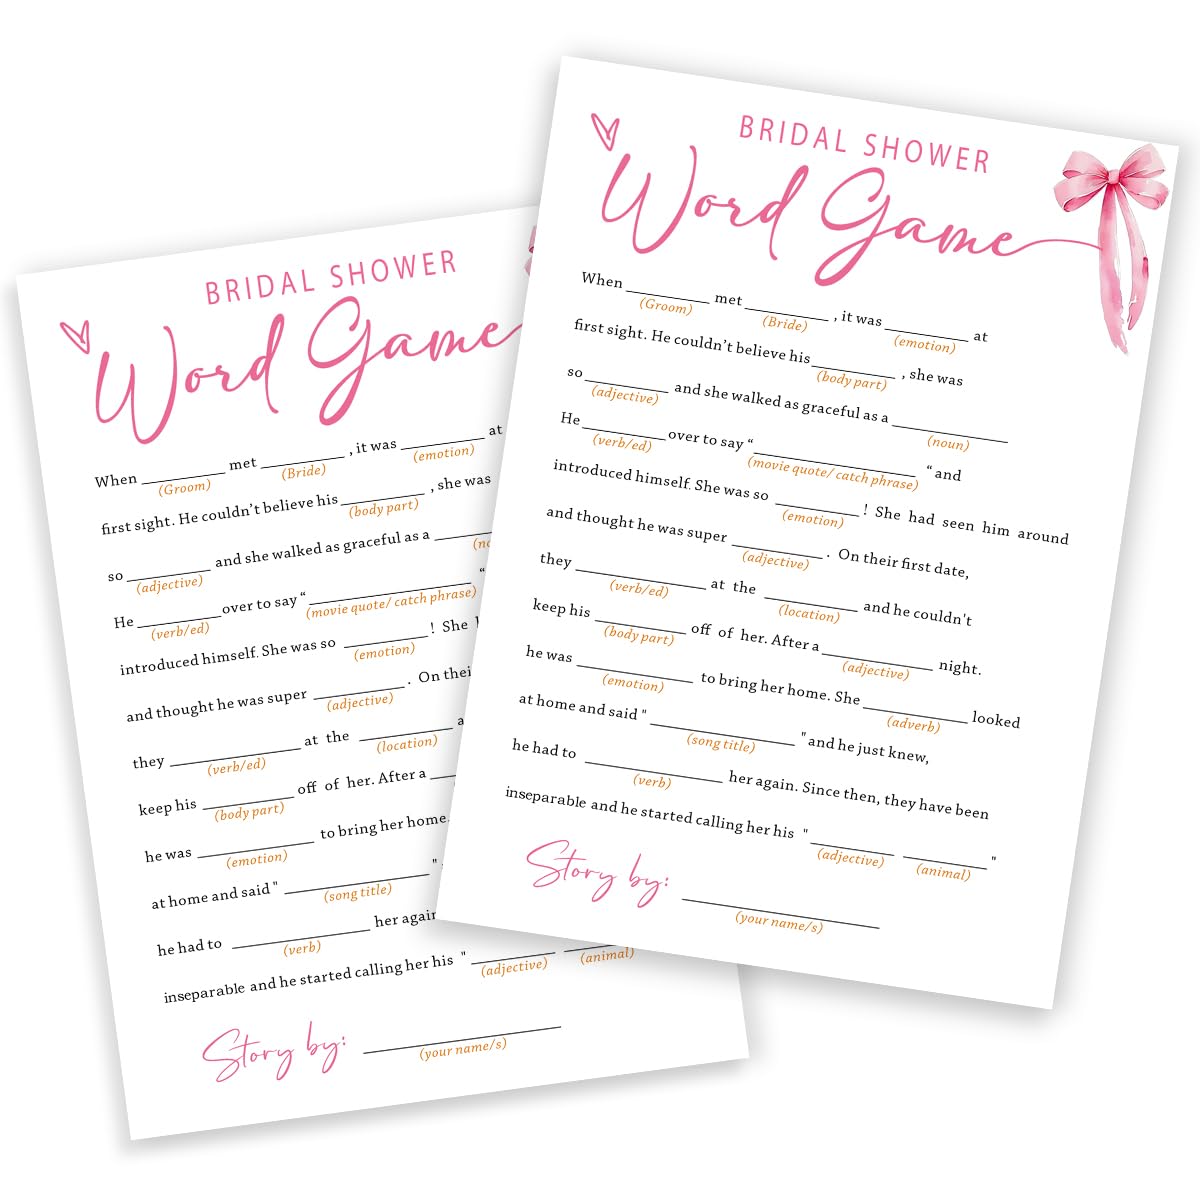 BRIDAL SHOWER
Word Game
When ____ met ____ , it was ____ at
(Groom) (Bride) (emotion)
first sight. He couldn’t believe his ____ , she was
(body part)
so ____ and she walked as graceful as a ____
(adjective) (no
He ____ over to say “ ____ “
(verb/ed) (movie quote/ catch phrase)
introduced himself. She was so ____ ! She
(emotion)
and thought he was super ____ . On thei
(adjective)
they ____ at the ____ a
(verb/ed) (location)
keep his ____ off of her. After a ____
(body part)
he was ____ to bring her home.
(emotion)
at home and said " ____ "
(song title)
he had to ____ her again
(verb)
inseparable and he started calling her his " ____ ____
(adjective) (animal)
Story by: ____
(your name/s)
BRIDAL SHOWER
Word Game
When ____ met ____ , it was ____ at
(Groom) (Bride) (emotion)
first sight. He couldn’t believe his ____ , she was
(body part)
so ____ and she walked as graceful as a ____
(adjective) (noun)
He ____ over to say “ ____ “ and
(verb/ed) (movie quote/ catch phrase)
introduced himself. She was so ____ ! She had seen him around
(emotion)
and thought he was super ____ . On their first date,
(adjective)
they ____ at the ____ and he couldn't
(verb/ed) (location)
keep his ____ off of her. After a ____ night.
(body part) (adjective)
he was ____ to bring her home. She ____ looked
(emotion) (adverb)
at home and said " ____ " and he just knew,
(song title)
he had to ____ her again. Since then, they have been
(verb)
inseparable and he started calling her his " ____ ____ "
(adjective) (animal)
Story by: ____
(your name/s)